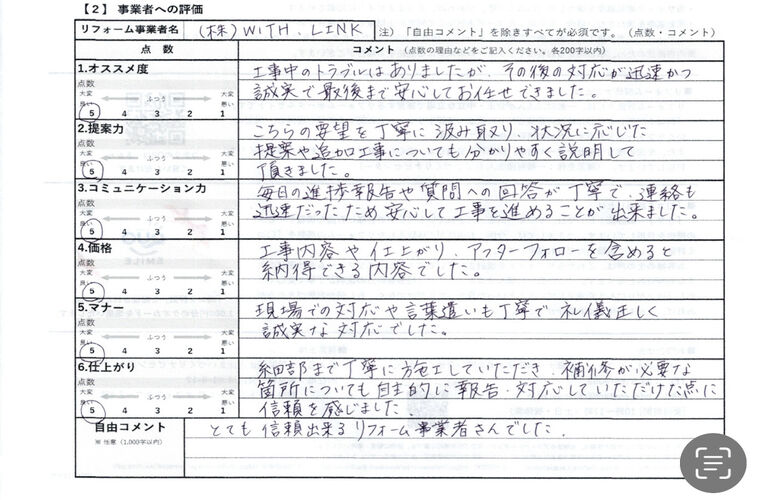 【２】 事業者への評価
リフォーム事業者名 (株) WITH. LINK 注） 「自由コメント」を除きすべてが必須です。（点数・コメント）
点 数 コメント （点数の理由などをご記入ください。各200字以内）
1.オススメ度
点数
大変良い ふつう 大変悪い
5 4 3 2 1
工事中のトラブルはありましたが、その後の対応が迅速かつ
誠実で最後まで安心してお任せできました。
2.提案力
点数
大変良い ふつう 大変悪い
5 4 3 2 1
こちらの要望を丁寧に汲み取り、状況に応じた
提案や追加工事についても分かりやすく説明して
頂きました。
3.コミュニケーション力
点数
大変良い ふつう 大変悪い
5 4 3 2 1
毎日の進捗報告や質問への回答が丁寧で、連絡も
迅速だったため安心して工事を進めることが出来ました。
4.価格
点数
大変良い ふつう 大変悪い
5 4 3 2 1
工事内容や仕上がり、アフターフォローを含めると
納得できる内容でした。
5.マナー
点数
大変良い ふつう 大変悪い
5 4 3 2 1
現場での対応や言葉遣いも丁寧で礼儀正しく
誠実な対応でした。
6.仕上がり
点数
大変良い ふつう 大変悪い
5 4 3 2 1
細部まで丁寧に施工していただき、補修が必要な
箇所についても自主的に報告・対応していただけた点に
信頼を感じました。
自由コメント
※ 任意（1,000字以内）
とても信頼出来るリフォーム事業者さんでした。